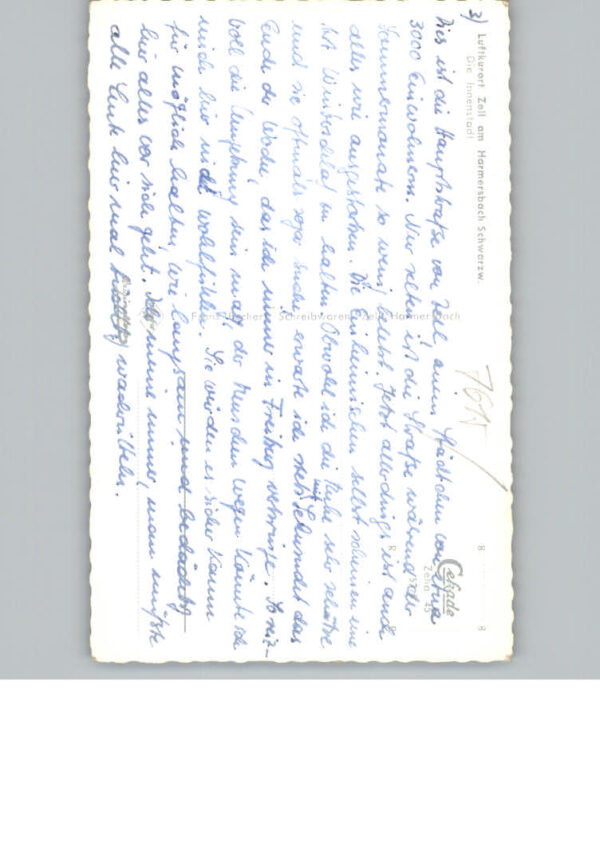 3) Luftkurort Zell am Harmersbach Schwarzw.
Die Innenstadt
Dies ist die Hauptstraße von Zell, einem Städtchen von etwa
3000 Einwohnern. Nur selten ist die Straße während der
Sommermonate so wenig belebt. Jetzt allerdings ist auch
alles wie ausgestorben. Die Einheimischen selbst scheinen eine
Art Winterschlaf zu halten. Obwohl ich die Ruhe sehr schätze
und sie oftmals sogar suche, erwarte ich mit Sehnsucht das
Ende der Woche, das ich immer in Freiburg verbringe. So reiz-
voll die Umgebung sein mag, der Menschen wegen könnte ich
mich hier nicht wohlfühlen. Sie würden es sicher kaum
für möglich halten, wie langsam und bedächtig
hier alles vor sich geht. Ich meine immer, man müßte
alle Leute hier mal wachrütteln.
Franz Büchert, Schreibwaren, Zell-Harmersbach
761
Cekade
Zella 45
R
B
8